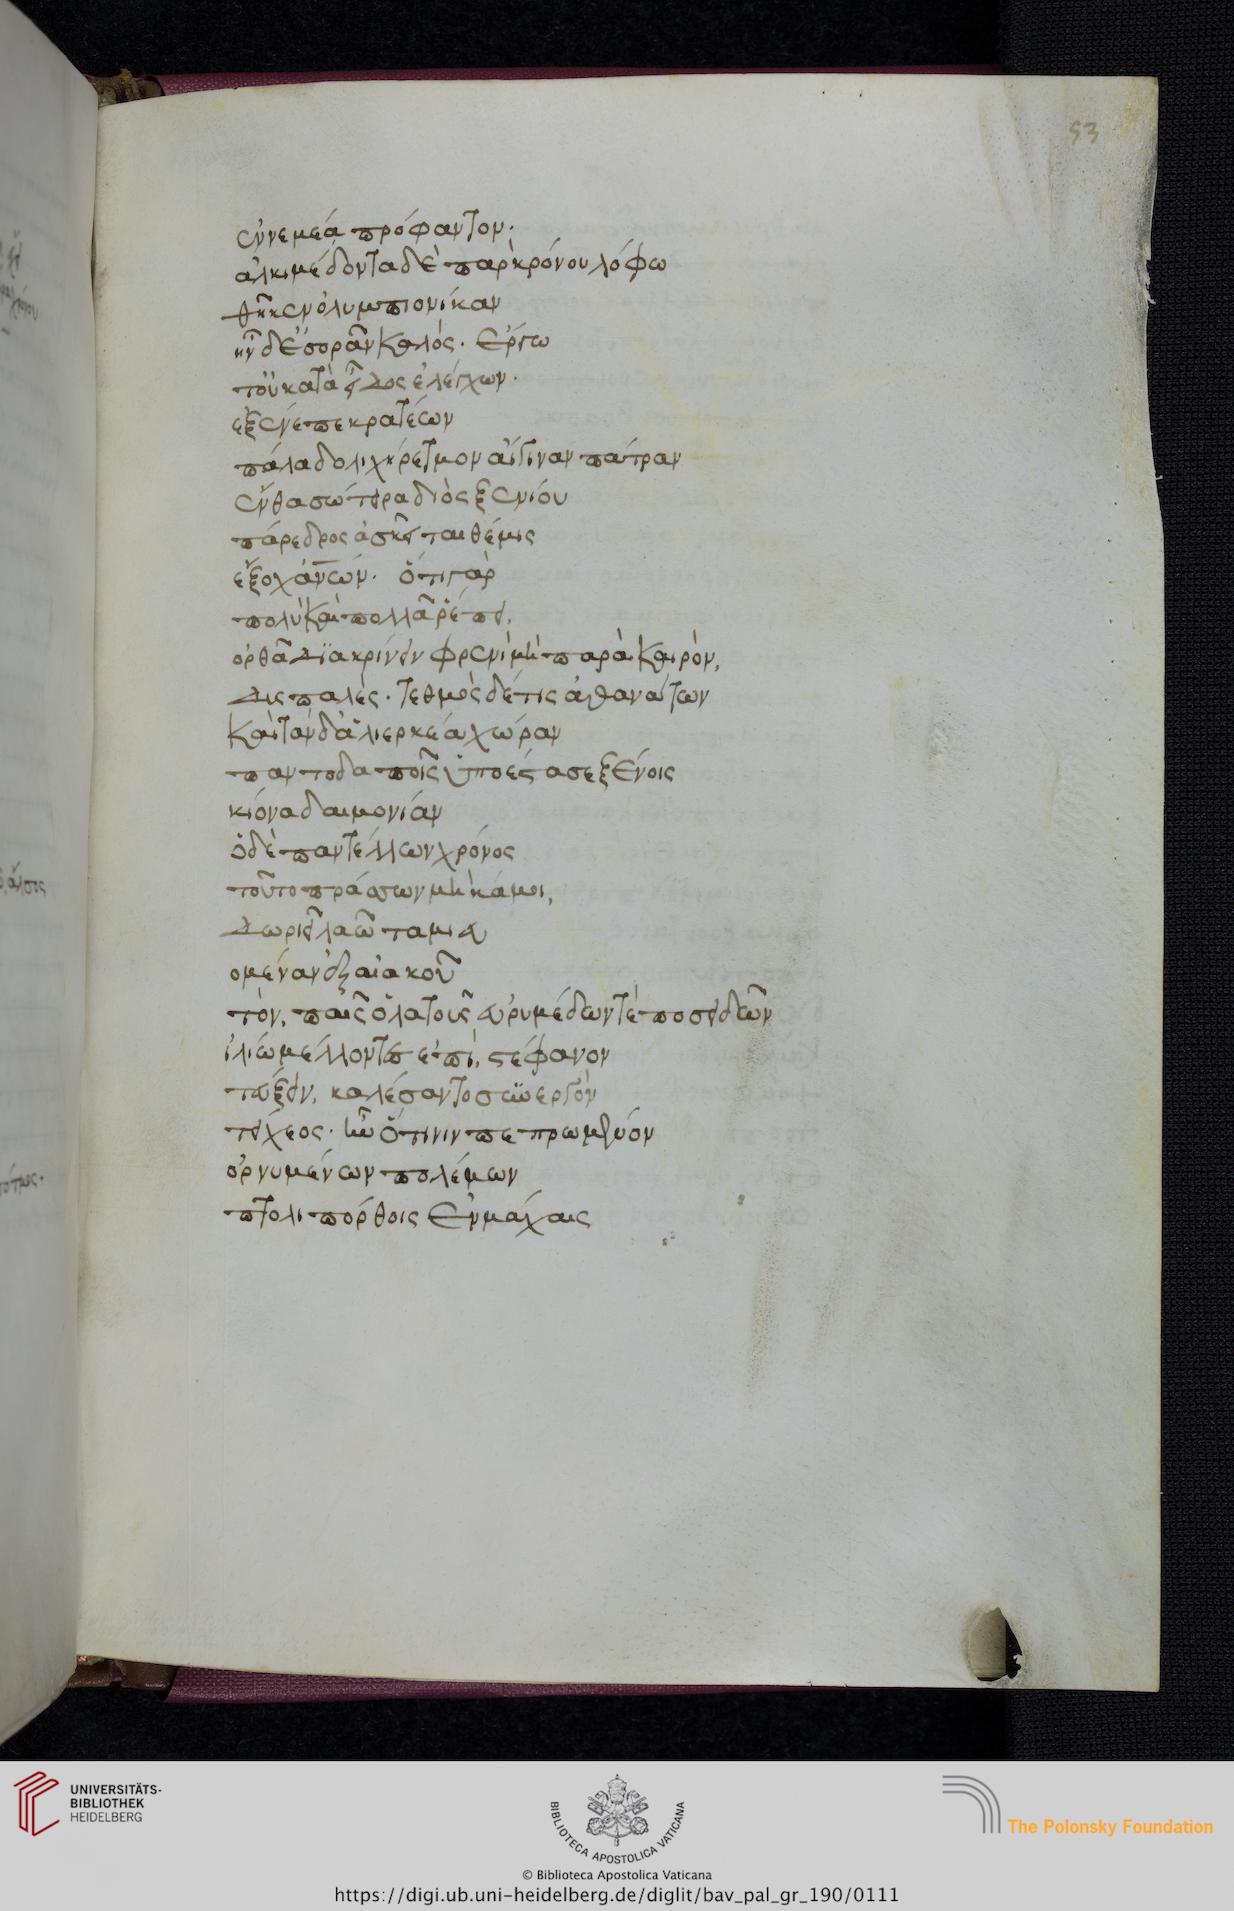 53
ἐν νεμέα πρόφαντον·
ἀλκιμέδοντα δὲ παρ κρόνου λόφω
θῆκεν ὀλυμπιονίκαν
ἦν δ' ἐσορᾶν καλός· ἔργω
τ' οὐ κατὰ εἶδος ἐλέγχων·
ἐξένεπε κρατέων
πάλα δολιχήρετμον αἴγιναν πάτραν
ἔνθα σώτειρα διὸς ξενίου
πάρεδρος ἀσκεῖται θέμις
ἔξοχ' ἀνθρώπων· ὅτι γὰρ
πολὺ καὶ πολλᾶ ῥέπει,
ὀρθᾶ διακρίνειν φρενὶ μὴ παρὰ καιρὸν,
δυσπαλές· τεθμὸς δέ τις ἀθανάτων
καὶ τάνδ' ἁλιερκέα χώραν
παντοδαποῖς ὑπέστασε ξένοις
κίονα δαιμονίαν
ὁ δ' ἐπαντέλλων χρόνος
τοῦτο πράσσων μὴ κάμοι,
δωριεῖ λαῶ ταμιευ
ομέναν ἐξ αἰακοῦ
τὸν, παῖς ὁ λατοῦς εὐρυμέδων τὲ ποσειδᾶν
ἰλίω μέλλοντες ἐπὶ, στέφανον
τεῦξειν, καλέσαντο συνεργὸν
τείχεος· ἦν ὅτι νιν πεπρωμένον
ὀρνυμένων πολέμων
πτολιπόρθοις ἐν μάχαις
UNIVERSITÄTS-
BIBLIOTHEK
HEIDELBERG
BIBLIOTECA APOSTOLICA VATICANA
The Polonsky Foundation
© Biblioteca Apostolica Vaticana
https://digi.ub.uni-heidelberg.de/diglit/bav_pal_gr_190/0111